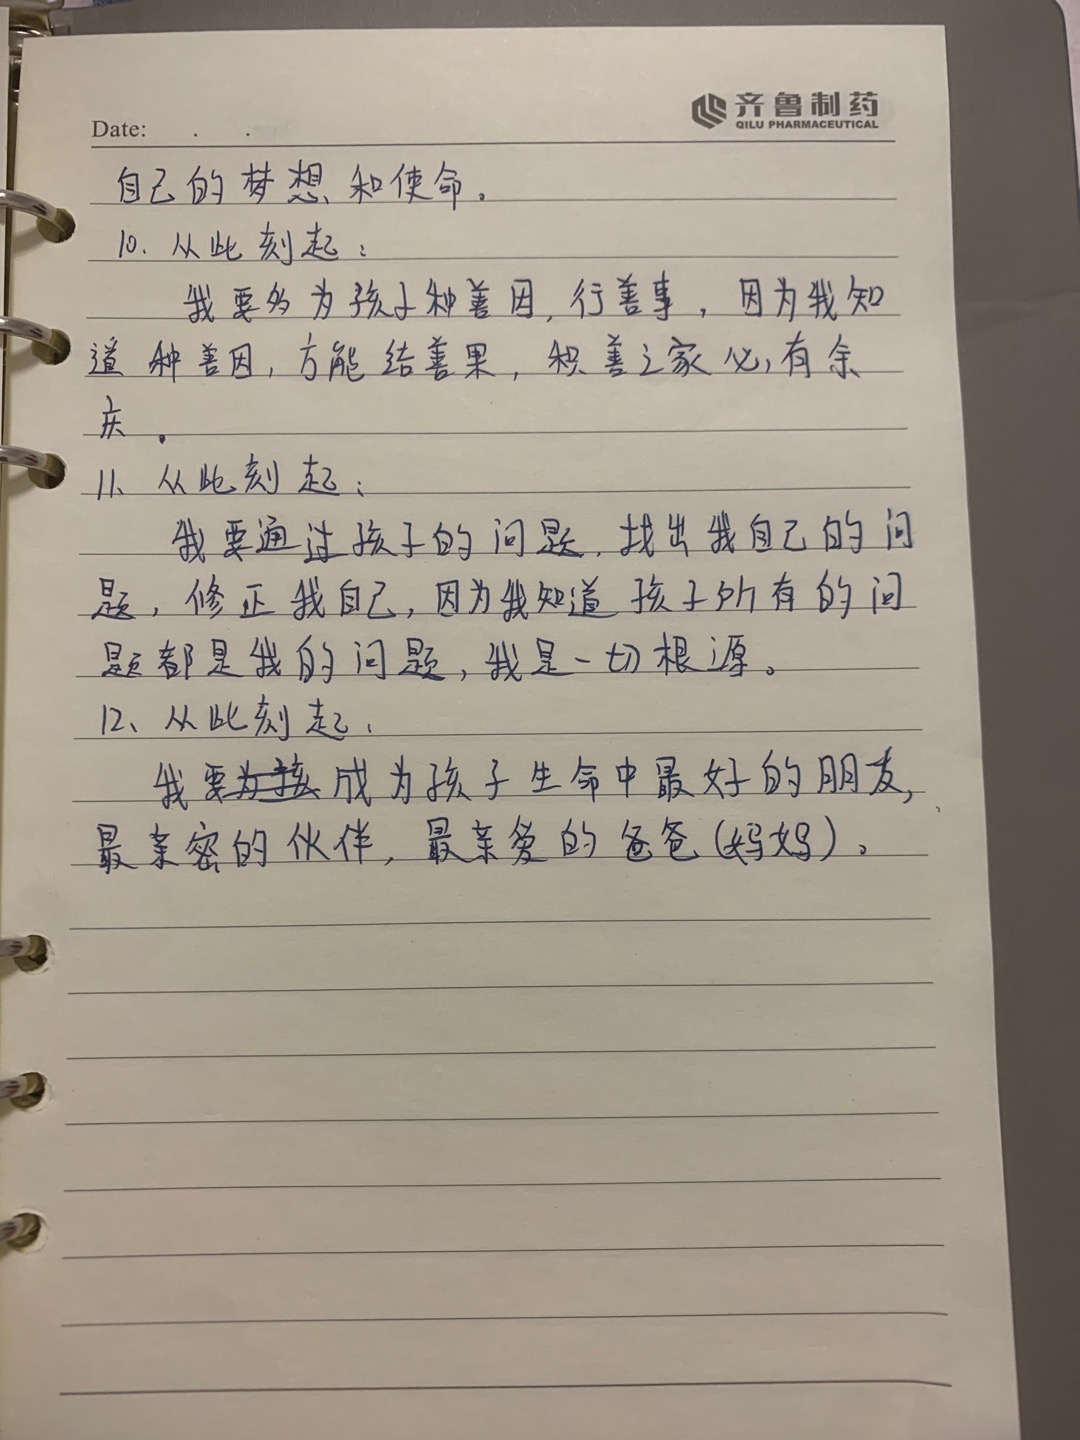 齐鲁制药
QILU PHARMACEUTICAL
Date: . .
自己的梦想和使命。
10. 从此刻起：
我要多为孩子种善因，行善事，因为我知
道种善因，方能结善果，积善之家必有余
庆。
11、从此刻起：
我要通过孩子的问题，找出我自己的问
题，修正我自己，因为我知道孩子所有的问
题都是我的问题，我是一切根源。
12、从此刻起，
我要成为孩子生命中最好的朋友，
最亲密的伙伴，最亲爱的爸爸（妈妈）。